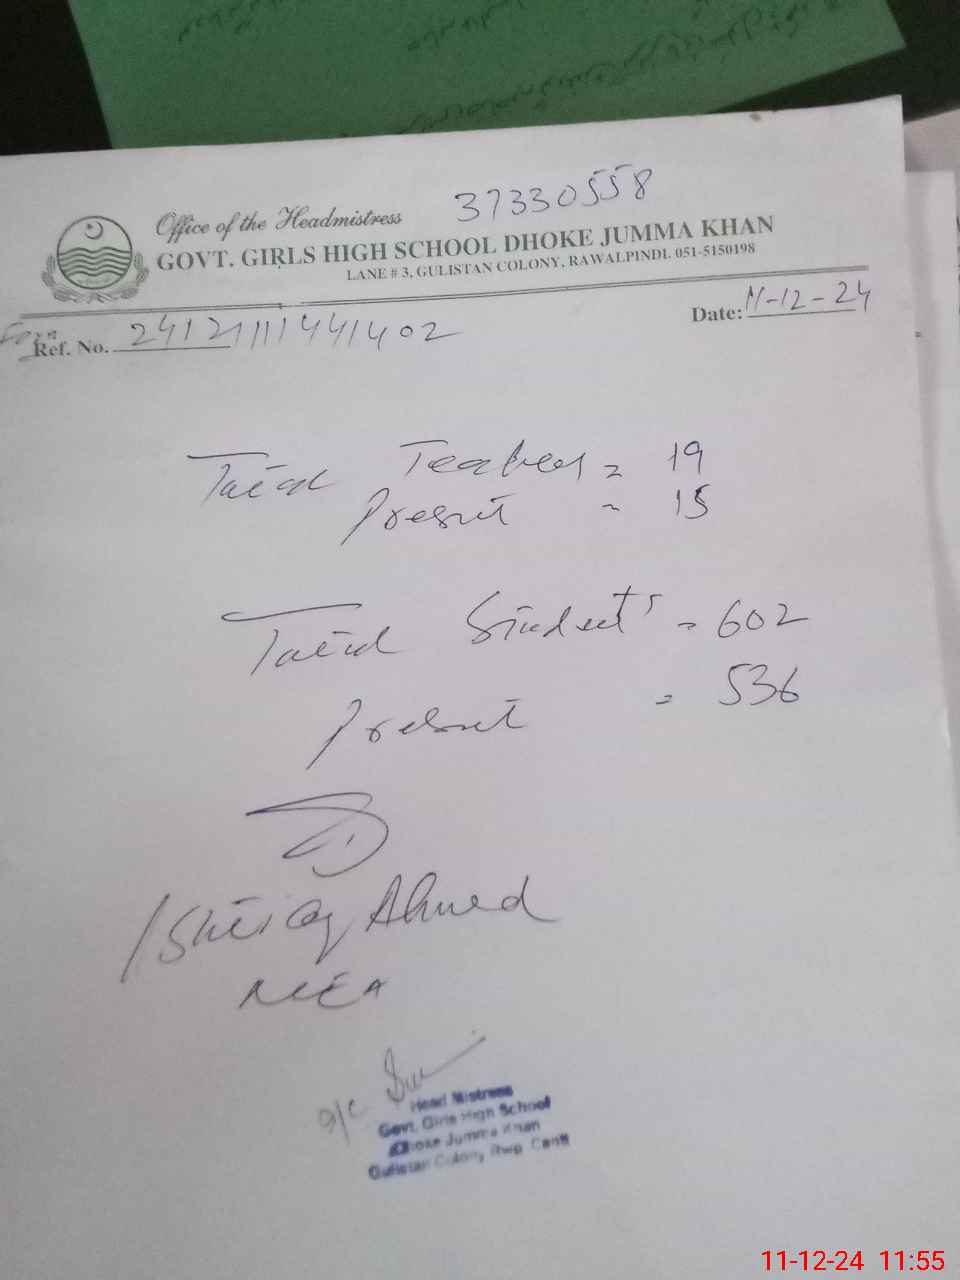 37330558
Office of the Headmistress
GOVT. GIRLS HIGH SCHOOL DHOKE JUMMA KHAN
LANE # 3, GULISTAN COLONY, RAWALPINDI. 051-5150198
Ref. No. 24121111441402
Date: 11-12-24
Total Teachers = 19
Present = 15
Total Students = 602
Present = 536
Ahmed
MEA
Head Mistress
Govt. Girls High School
Dhoke Jumma Khan
Gulistan Colony Rwp. Cantt
11-12-24 11:55